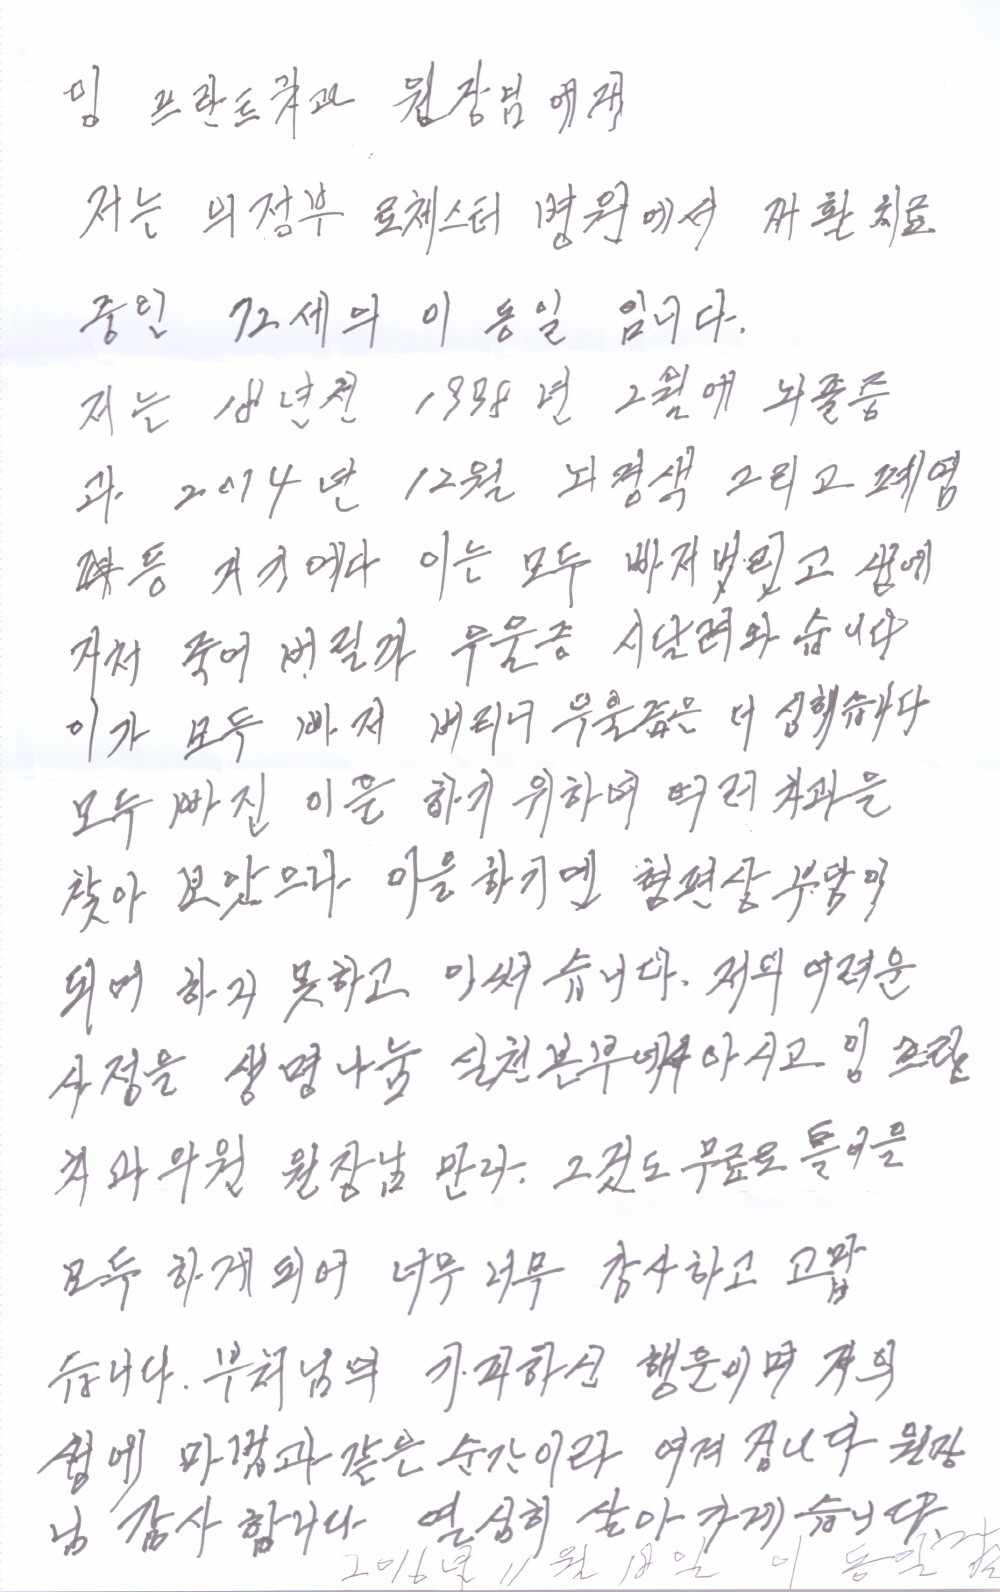 밍 프란트치과 원장님에게
저는 의정부 로체스터 병원에서 재활치료
중인 72세의 이 동일 입니다.
저는 18년전 1998년 2월에 뇌졸중
과 2014년 12월 뇌경색 그리고 폐염
등 거기에다 이는 모두 빠저버리고 삶에
지처 죽어 버릴가 우울증 시달려와 습니다
이가 모두 빠저 버리니 우울즘은 더 심했습니다
모두 빠진 이을 하기 위하며 여러 치과을
찾아 보았으나 이을하기엔 형편상 부담이
되며 하지 못하고 있써 습니다. 저의 어려운
사정을 생명나눔 실천본부에서 아시고 밍 프란
치과 의원 원장님 만나. 그것도 무료로 틀이을
모두 하게되어 너무 너무 감사하고 고맙
습니다. 부처님의 가피하신 행운이며 저의
삶에 마법과 같은 순간이라 여겨 집니다 원장
님 감사 합니다 열심히 살아 가게습니다
2016년 11월 18일 이 동일